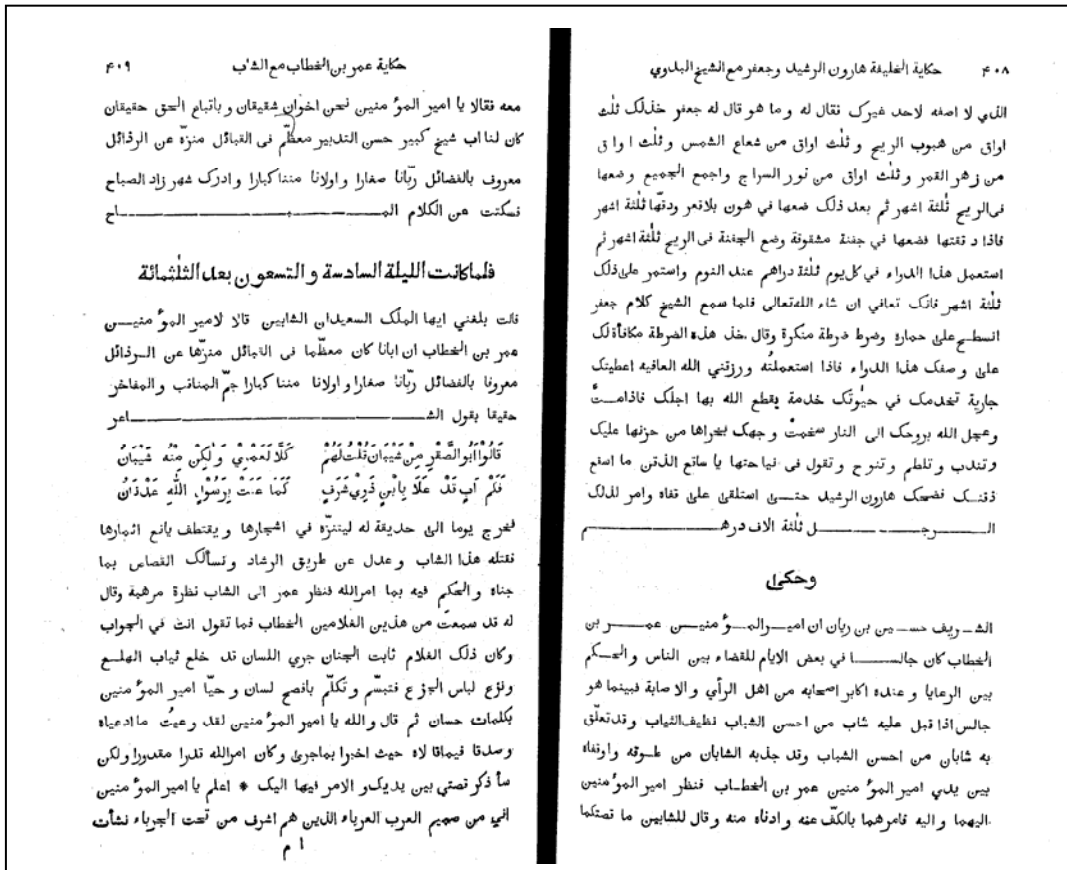 ٤٠٨ حكاية الخليفة هارون الرشيد وجعفر مع الشيخ البدوي
الذي لا اصفه لاحد غيرك فقال له وما هو قال له جعفر خذلك ثلٰث
اواق من هبوب الريح وثلٰث اواق من شعاع الشمس وثلٰث اواق
من زهر القمر وثلٰث اواق من نور السراج واجمع الجميع وضعها
فى الريح ثلٰثة اشهر ثم بعد ذلك ضعها في هون بلا قعر ودقّها ثلٰثة اشهر
فاذا دققتها فضعها في جفنة مشقوقة وضع الجفنة فى الريح ثلٰثة اشهر ثم
استعمل هذا الدواء في كل يوم ثلٰثة دراهم عند النوم واستمر على ذلك
ثلٰثة اشهر فانك تعافي ان شاء الله تعالى فلما سمع الشيخ كلام جعفر
انسطح على حماره وضرط ضرطة منكرة وقال خذ هذه الضرطة مكافأة لك
على وصفك هذا الدواء فاذا استعملتُه ورزقني الله العافيه اعطيتك
جارية تخدمك في حيٰوتك خدمة يقطع الله بها اجلك فاذامتَّ
وعجل الله بروحك الى النار سخمتْ وجهك بخراها من حزنها عليك
وتندب وتلطم وتنوح وتقول فى نياحتها يا ساقع الذقن ما اسقع
ذقنك فضحك هارون الرشيد حتى استلقى على قفاه وامر لذلك
الرجل ثلٰثة الاف درهم
وحكى
الشريف حسين بن ريان ان امير المؤمنين عمر بن
الخطاب كان جالسا في بعض الايام للقضاء بين الناس والحكم
بين الرعايا وعنده اكابر اصحابه من اهل الرأي والاصابة فبينما هو
جالس اذا قبل عليه شاب من احسن الشباب نظيف الثياب وقد تعلّق
به شابان من احسن الشباب وقد جذبه الشابان من طوقه واوقفاه
بين يدي امير المؤمنين عمر بن الخطاب فنظر امير المؤمنين
اليهما واليه فامرهما بالكفّ عنه وادناه منه وقال للشابين ما قصتكما
حكاية عمر بن الخطاب مع الشاب ٤٠٩
معه فقالا يا امير المؤمنين نحن اخوان شقيقان وباتباع الحق حقيقان
كان لنا اب شيخ كبير حسن التدبير معظّم فى القبائل منزّه عن الرذائل
معروف بالفضائل ربّانا صغارا واولانا مننا كبارا وادرك شهر زاد الصباح
فسكتت عن الكلام المباح
فلما كانت الليلة السادسة والتسعون بعد الثلٰثمائة
قالت بلغني ايها الملك السعيد ان الشابين قالا لامير المؤمنين
عمر بن الخطاب ان ابانا كان معظّما فى القبائل منزّها عن الرذائل
معروفا بالفضائل ربّانا صغارا واولانا مننا كبارا جمّ المناقب والمفاخر
حقيقا بقول الشاعر
قَالُوْا اَبُو الصَّقْرِ مِنْ شَيْبَانَ قُلْتُ لَهُمْ كَلَّا لَعَمْرِيْ وَلٰكِنْ مِنْهُ شَيْبَانُ
فَكَمْ اَبٍ قَدْ عَلَا بِابْنٍ ذُرِيْ شَرَفٍ كَمَا عَلَتْ بِرَسُوْلِ اللّٰهِ عَدْنَانُ
فخرج يوما الى حديقة له ليتنزّه في اشجارها ويقتطف يانع اثمارها
فقتله هذا الشاب وعدل عن طريق الرشاد ونسألك القصاص بما
جناه والحكم فيه بما امر الله فنظر عمر الى الشاب نظرة مرهبة وقال
له قد سمعتَ من هذين الغلامين الخطاب فما تقول انت في الجواب
وكان ذلك الغلام ثابت الجنان جري اللسان قد خلع ثياب الهلع
ونزع لباس الجزع فتبسّم وتكلّم بافصح لسان وحيّا امير المؤمنين
بكلمات حسان ثم قال والله يا امير المؤمنين لقد وعيتُ ما ادعياه
وصدقا فيما قالاه حيث اخبرا بما جرى وكان امر الله قدرا مقدورا ولكن
سأذكر قصتي بين يديك والامر فيها اليك * اعلم يا امير المؤمنين
اني من صميم العرب العرباء الذين هم اشرف من تحت الجرباء نشأت
ا م